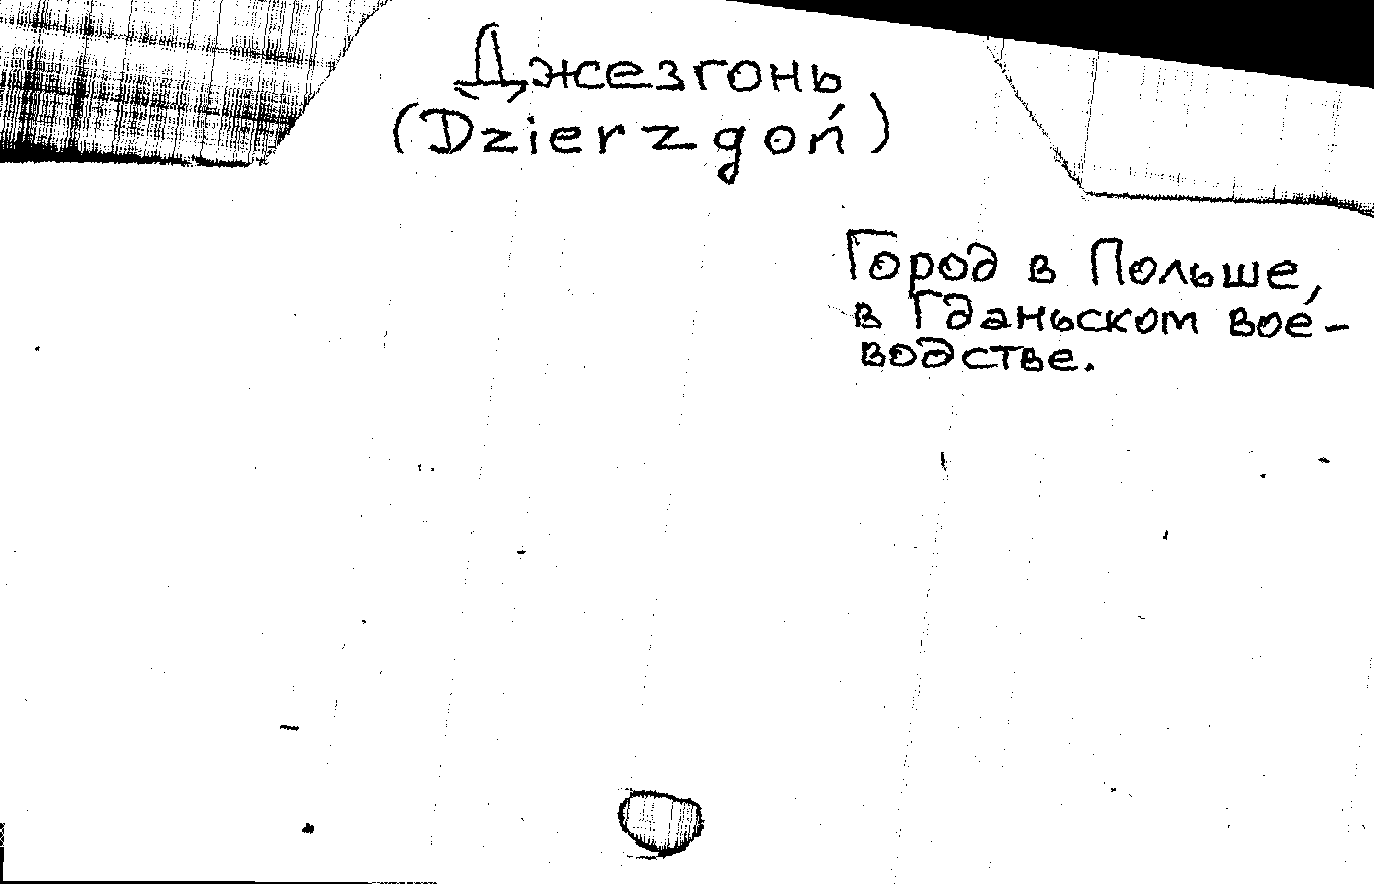 Джезгонь
(Dzierzgoń)
Город в Польше,
в Гданьском вое-
водстве.